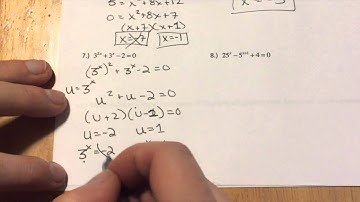 5 = x² + 8x + 12
0 = x² + 8x + 7
(x+7)(x+1)
x=-7 x=-1
7.) 3²ˣ + 3ˣ - 2 = 0
8.) 25ˣ - 5ˣ⁺¹ + 4 = 0
(3ˣ)² + 3ˣ - 2 = 0
u = 3ˣ
u² + u - 2 = 0
(u + 2)(u - 1) = 0
u = -2 u = 1
3ˣ = -2